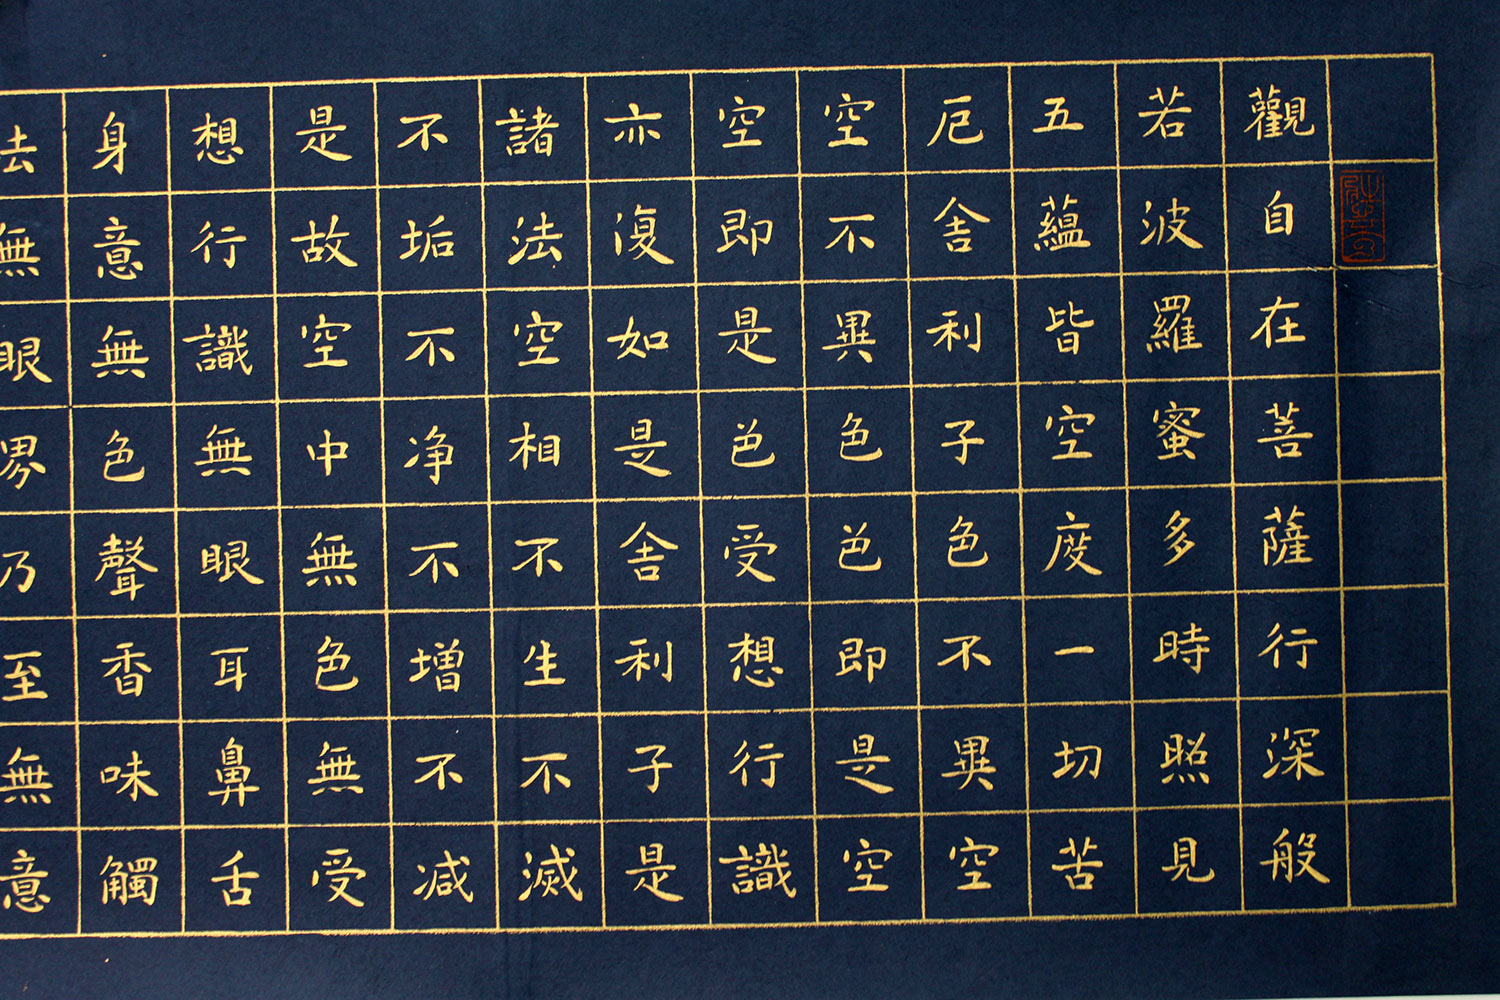 觀自在菩薩行深般
若波羅蜜多時照見
五蘊皆空度一切苦
厄舍利子色不異空
空不異色色即是空
空即是色受想行識
亦復如是舍利子是
諸法空相不生不滅
不垢不净不增不减
是故空中無色無受
想行識無眼耳鼻舌
身意無色聲香味觸
法無眼界乃至無意